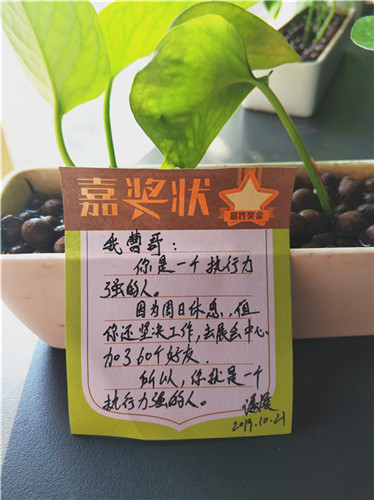 嘉奖状
嘉许奖金
我曹哥：
你是一个执行力
强的人。
因为周日休息，但
你还坚决工作，去展会中心
加了60个好友．
所以，你就是一个
执行力强的人。
2019.10.21